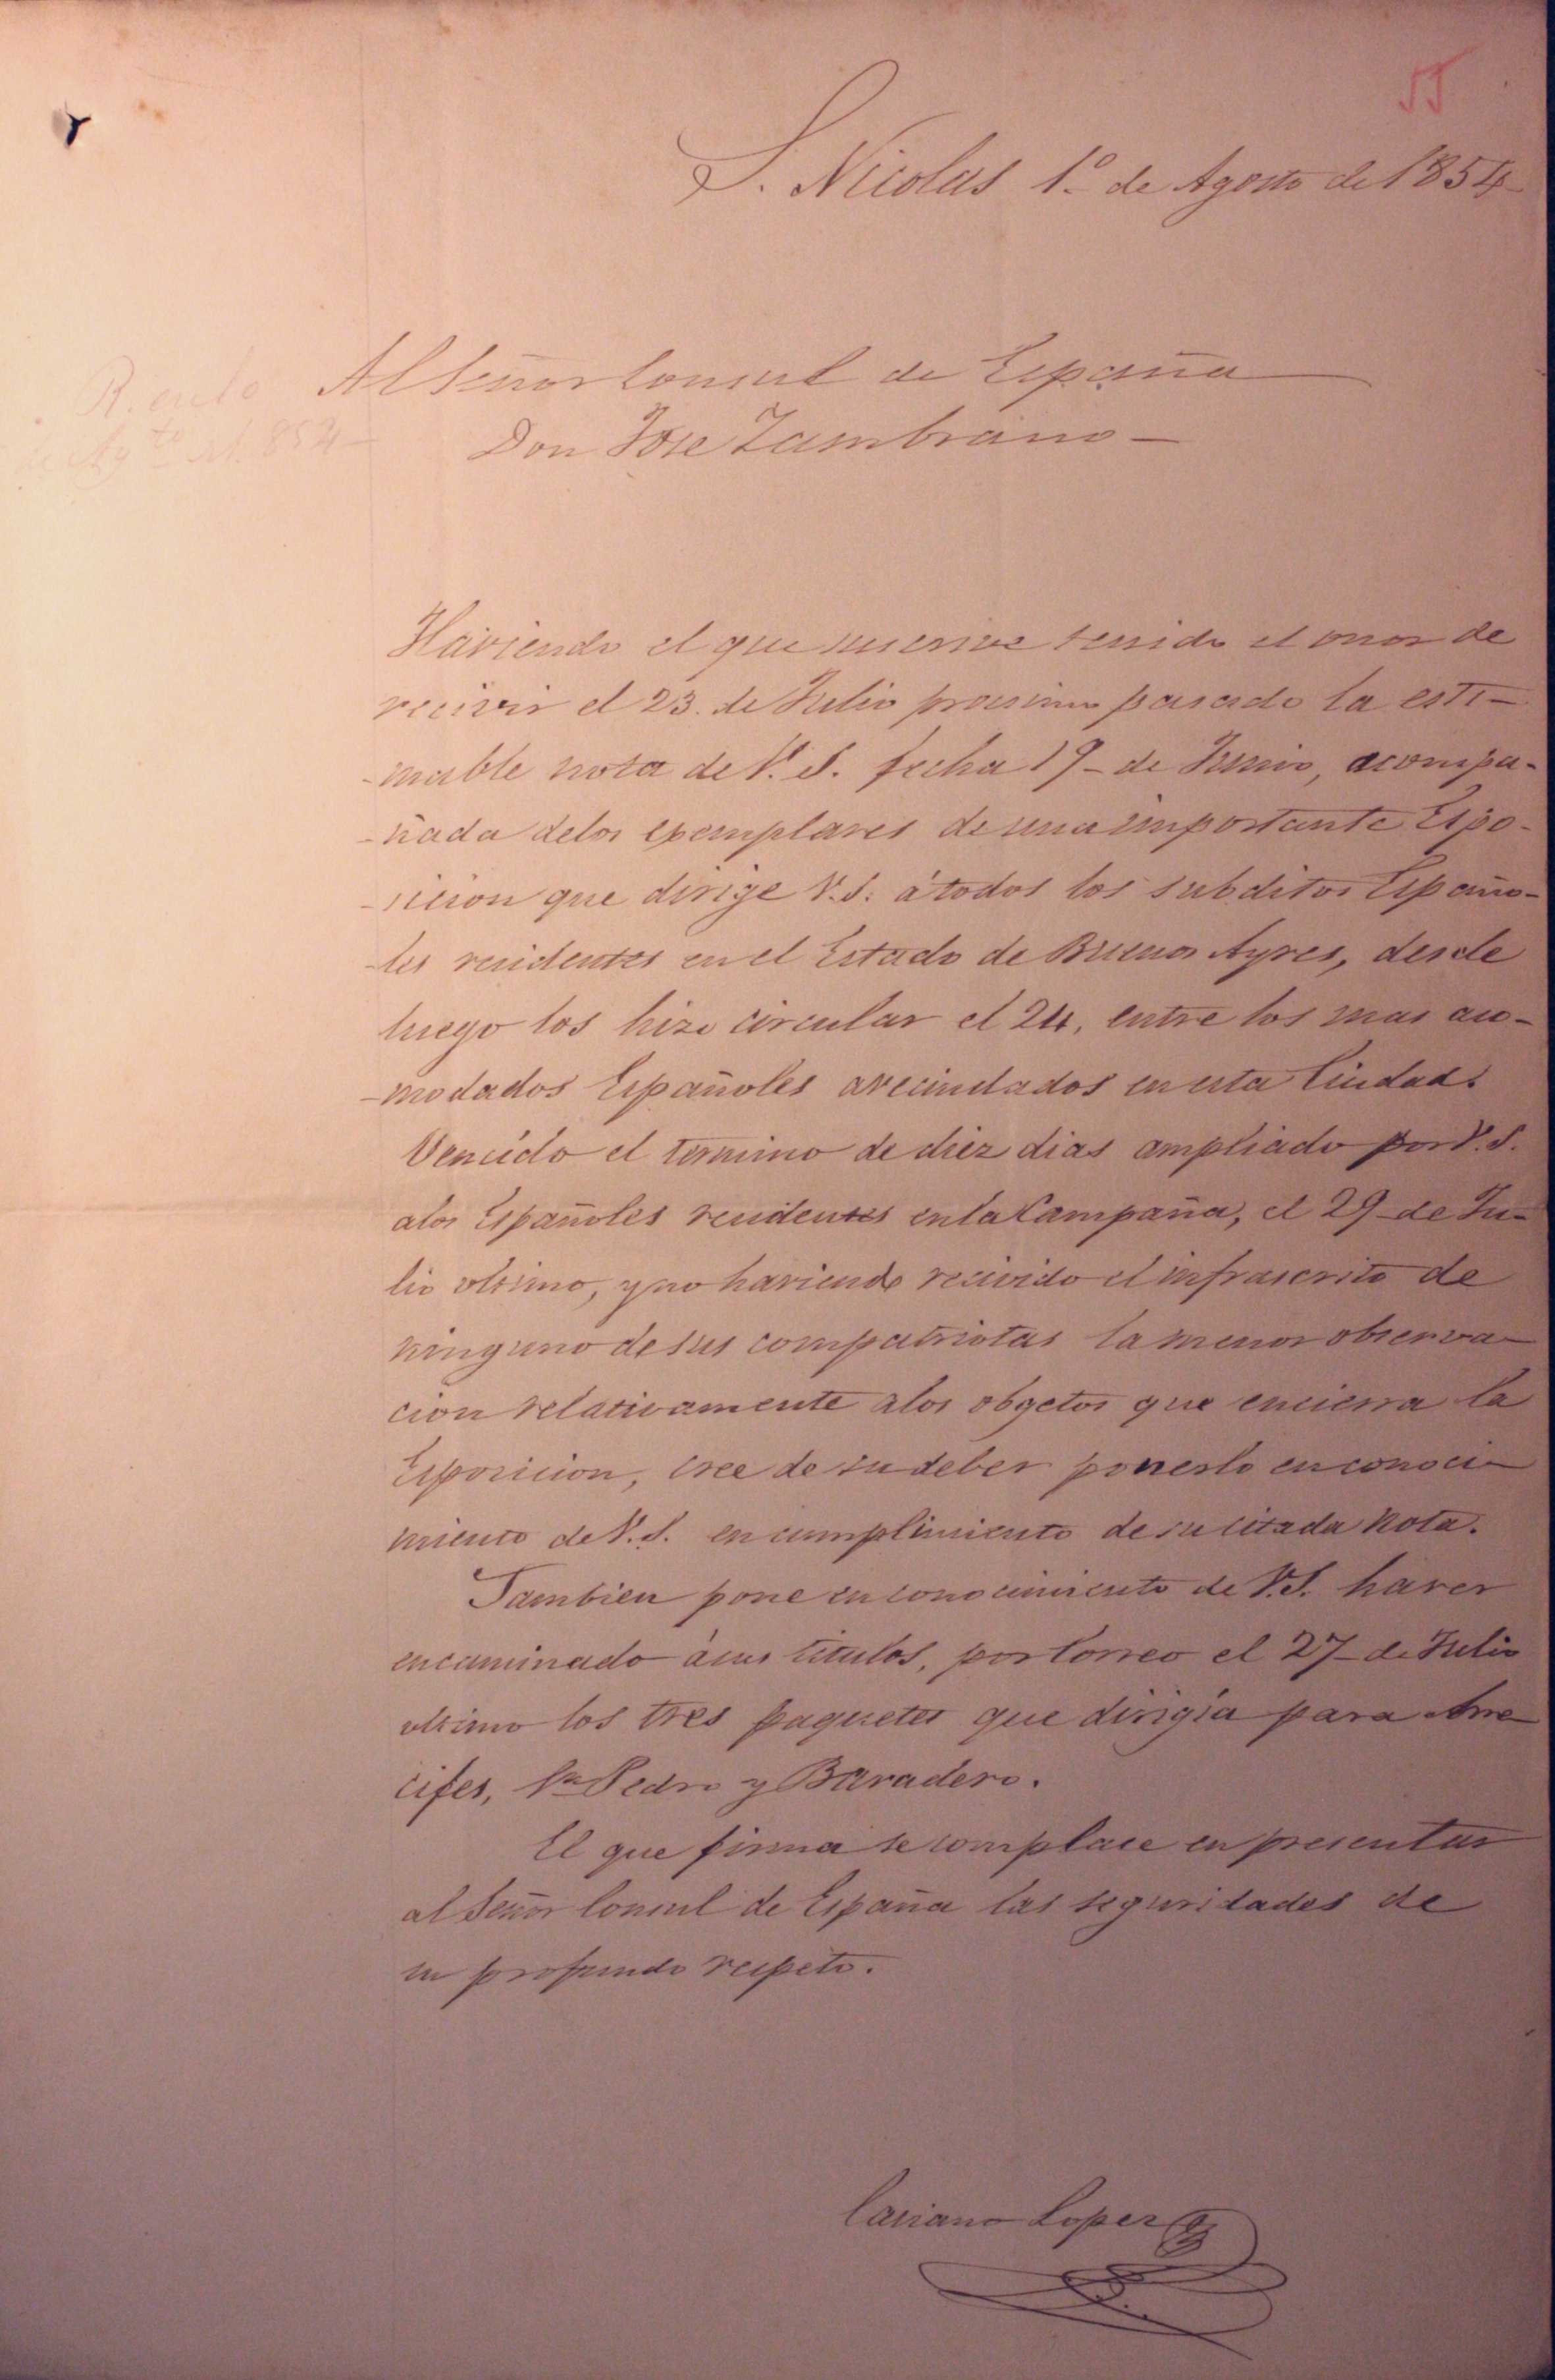 55
S. Nicolas 1º de Agosto de 1854
R. en 10
de Agto de 1854
Al Señor Consul de España
Don Jose Zambrano
Haviendo el que suscrive tenido el onor de
recivir el 23. de Julio proximo pasado la esti-
-mable nota de V. S. fecha 19 de Junio, acompa-
-ñada delos exemplares de una importante Espo-
-sicion que dirige V. S. á todos los subditos Españo-
-les residentes en el Estado de Buenos Ayres, desde
luego los hize circular el 24, entre los mas aco-
-modados Españoles avecindados en esta Ciudad.
Vencido el termino de diez dias ampliado por V. S.
alos Españoles residentes en la Campaña, el 29 de Ju-
lio ultimo, y no haviendo recivido el infrascrito de
ninguno de sus compatriotas la menor observa-
cion relativamente alos obgetos que encierra la
Esposicion, cree de su deber ponerlo en conoci-
miento de V. S. en cumplimiento de su citada nota.
Tambien pone en conocimiento de V. S. haver
encaminado á sus titulos, por Correo el 27 de Julio
ultimo los tres paquetes que dirigía para Arre-
cifes, Sn Pedro y Baradero.
El que firma se complace en presentar
al Señor Consul de España las seguridades de
su profundo respeto.
Casiano Lopez